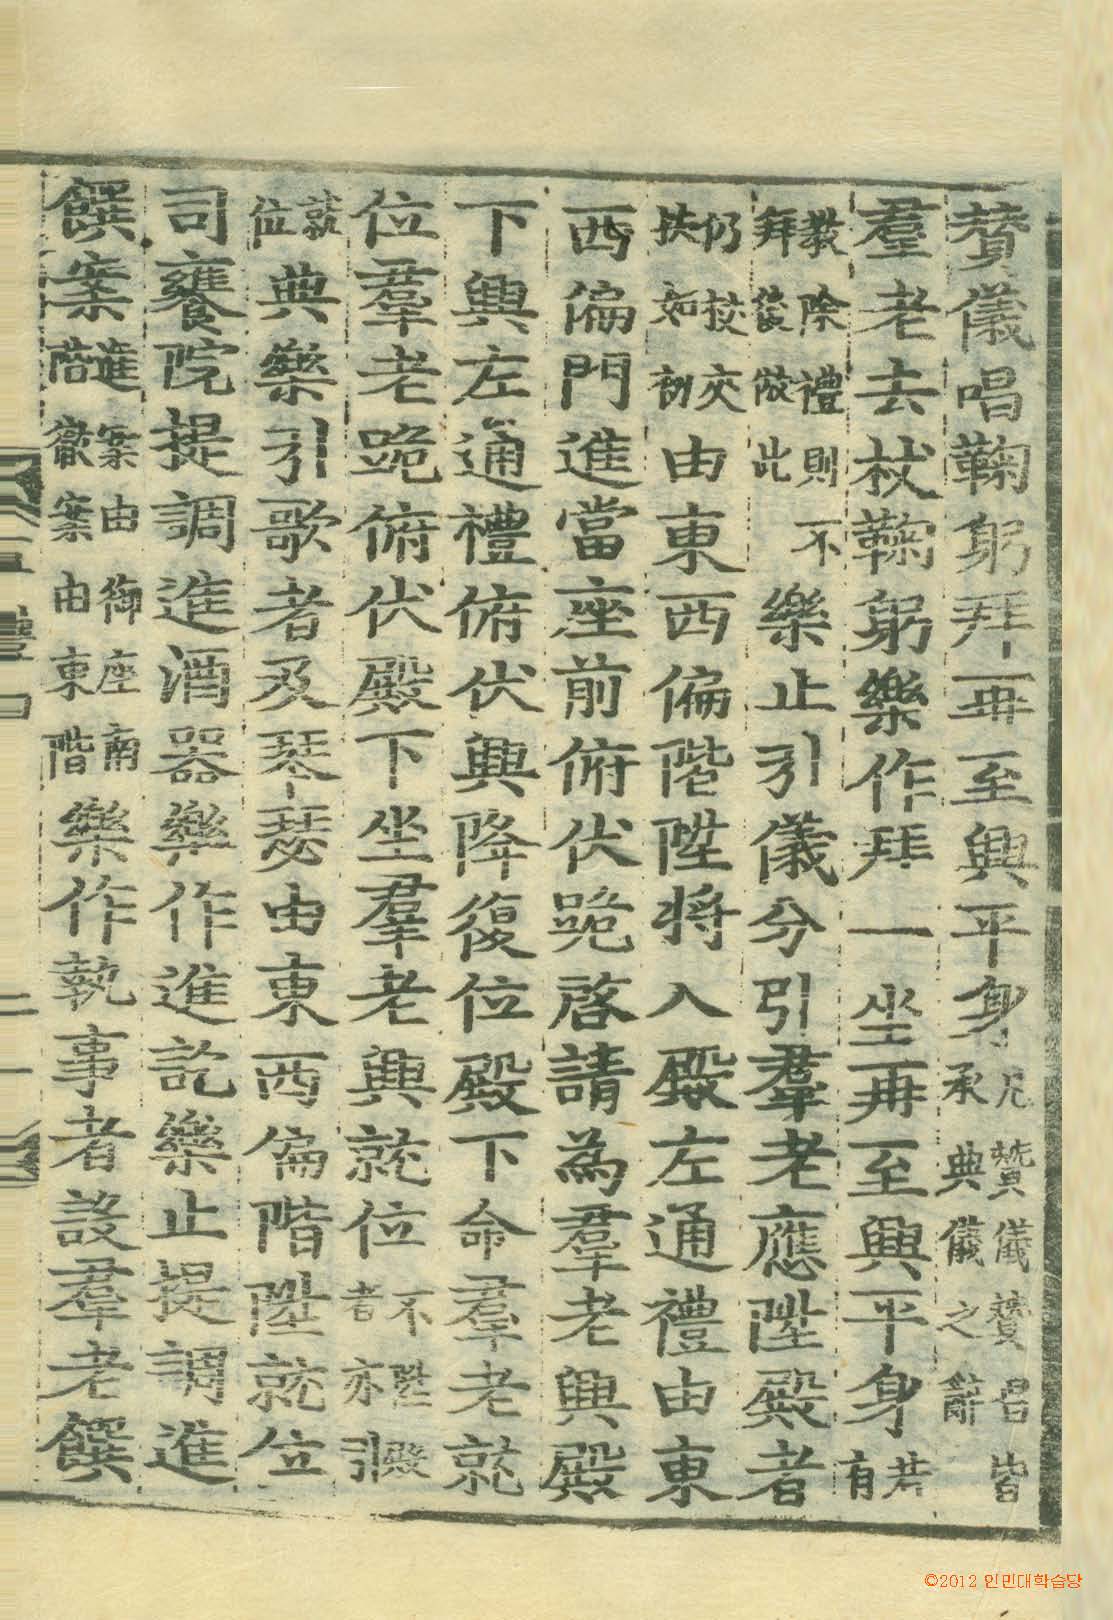 贊儀唱鞠躬拜再至興平身凡贊儀贊唱皆承典儀之辭
羣老去杖鞠躬樂作拜一坐再至興平身若有
教除禮則不拜後倣此樂止引儀分引羣老應陞殿者
仍校夾扶如初由東西偏階陞將入殿左通禮由東
西偏門進當座前俯伏跪啓請為羣老興殿
下興左通禮俯伏興降復位殿下命羣老就
位羣老跪俯伏殿下坐羣老興就位不陞殿者亦引
就位典樂引歌者及琴瑟由東西偏階陞就位
司饔院提調進酒器樂作進訖樂止提調進
饌案進案由御座南階徹案由東階樂作執事者設羣老饌
©2012 인민대학습당